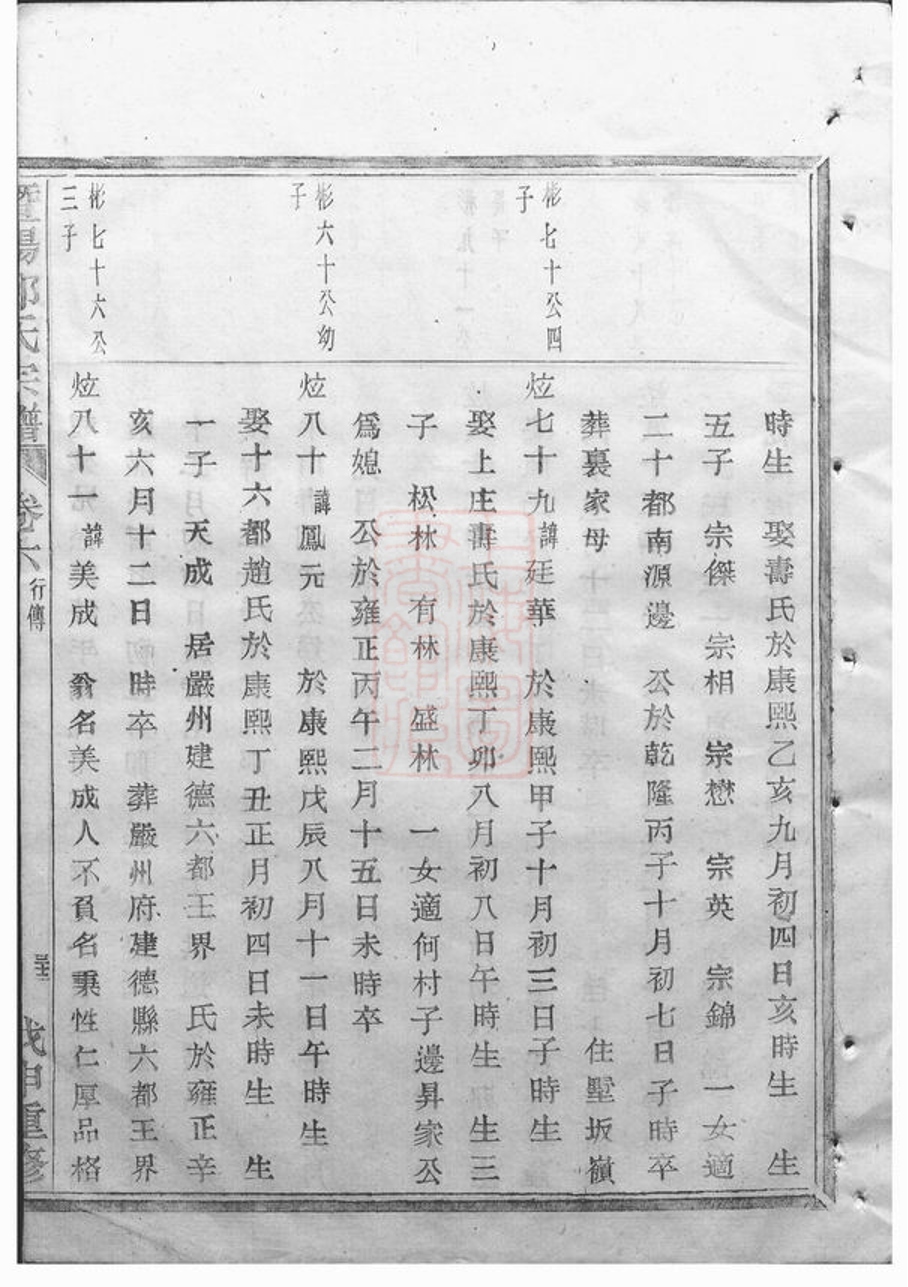 時生 娶壽氏於康熙乙亥九月初四日亥時生 生
五子 宗傑 宗相 宗懋 宗英 宗錦 一女適
二十都南源邊 公於乾隆丙子十月初七日子時卒
葬裏家母 住墅坂嶺
彬七十公四
子
炫七十九 諱廷華 於康熙甲子十月初三日子時生
娶上庄壽氏於康熙丁卯八月初八日午時生 生三
子 松林 有林 盛林 一女適何村子邊昇家公
爲媳 公於雍正丙午二月十五日未時卒
彬六十公幼
子
炫八十 諱鳳元 於康熙戊辰八月十一日午時生
娶十六都趙氏於康熙丁丑正月初四日未時生 生
一子 天成 居嚴州建德六都王界 氏於雍正辛
亥六月十二日時卒 葬嚴州府建德縣六都王界
彬七十六公
三子
炫八十一 諱美成 翁名美成人不負名秉性仁厚品格
暨陽 氏宗譜 卷六 行傳 戊申重修